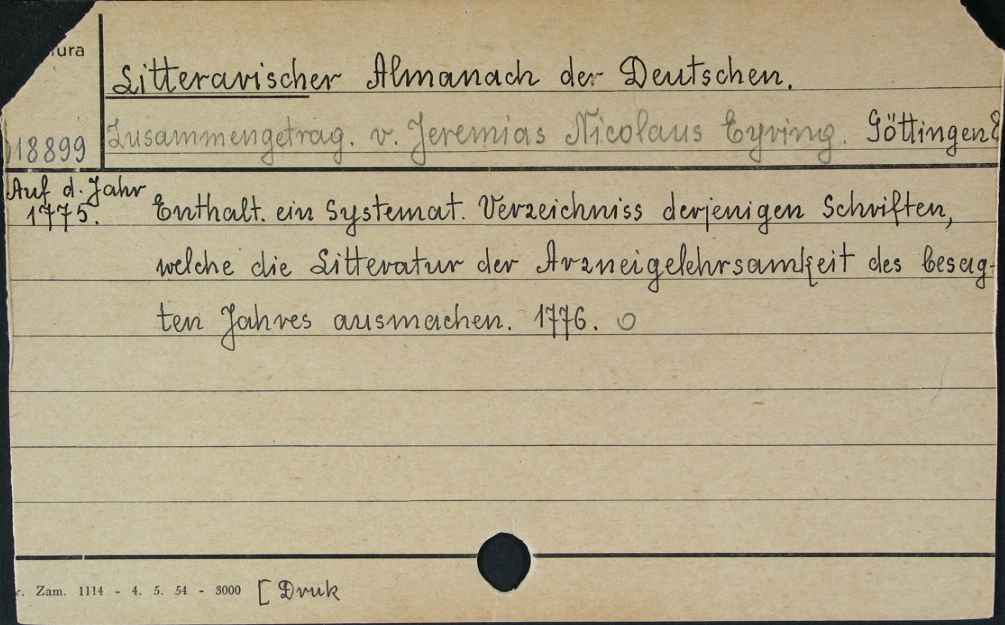 Litterarischer Almanach der Deutschen.
18899 Zusammengetrag. v. Jeremias Nicolaus Eyring. Göttingen
Auf d. Jahr
1775. Enthalt. ein Systemat. Verzeichniss derjenigen Schriften,
welche die Litteratur der Arzneigelehrsamkeit des besag-
ten Jahres ausmachen. 1776. O
Zam. 1114 - 4. 5. 54 - 3000 [ Druk